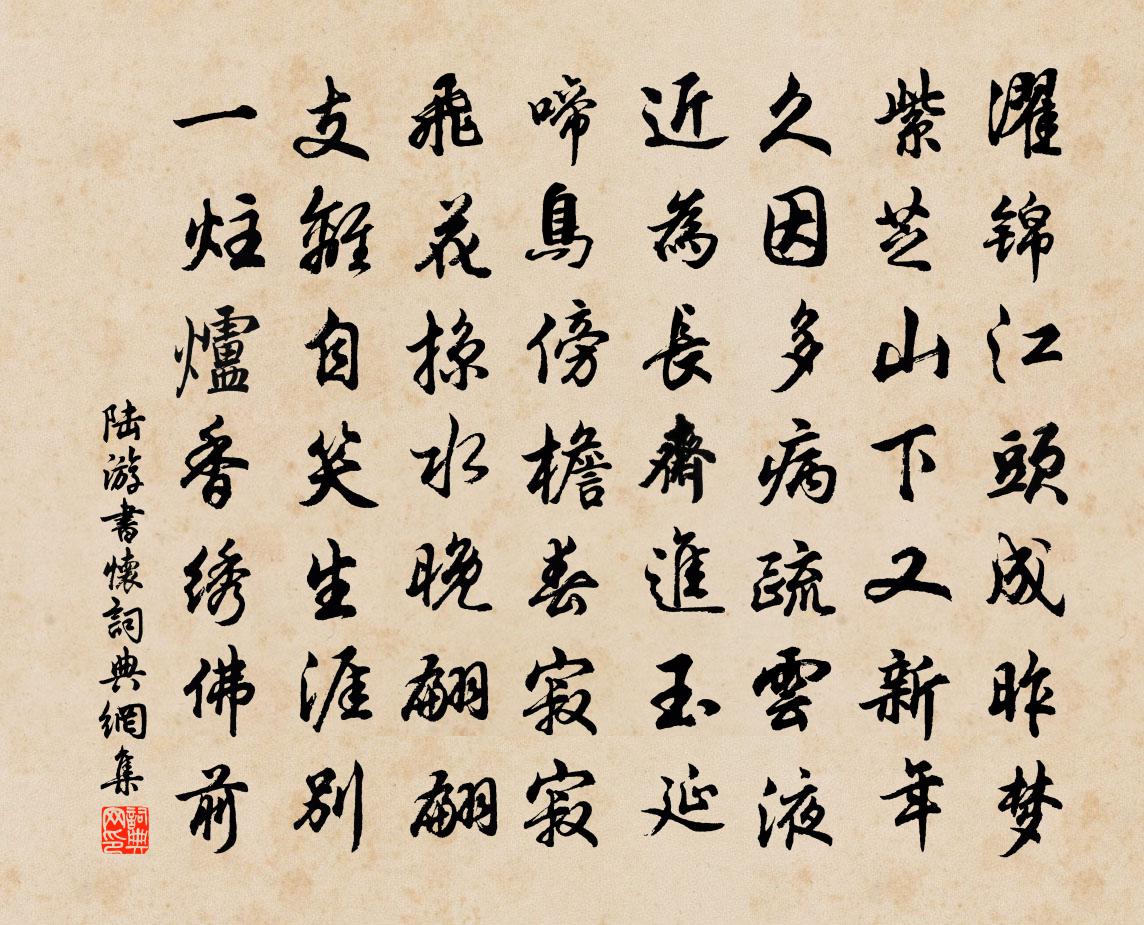 濯锦江頭成昨梦
紫芝山下又新年
久因多病疏雲液
近為長齋進玉延
啼鳥傍檐春寂寂
飛花掠水晚翩翩
支離自笑生涯别
一炷爐香绣佛前
陆游書懷詞典網集
詞典网印